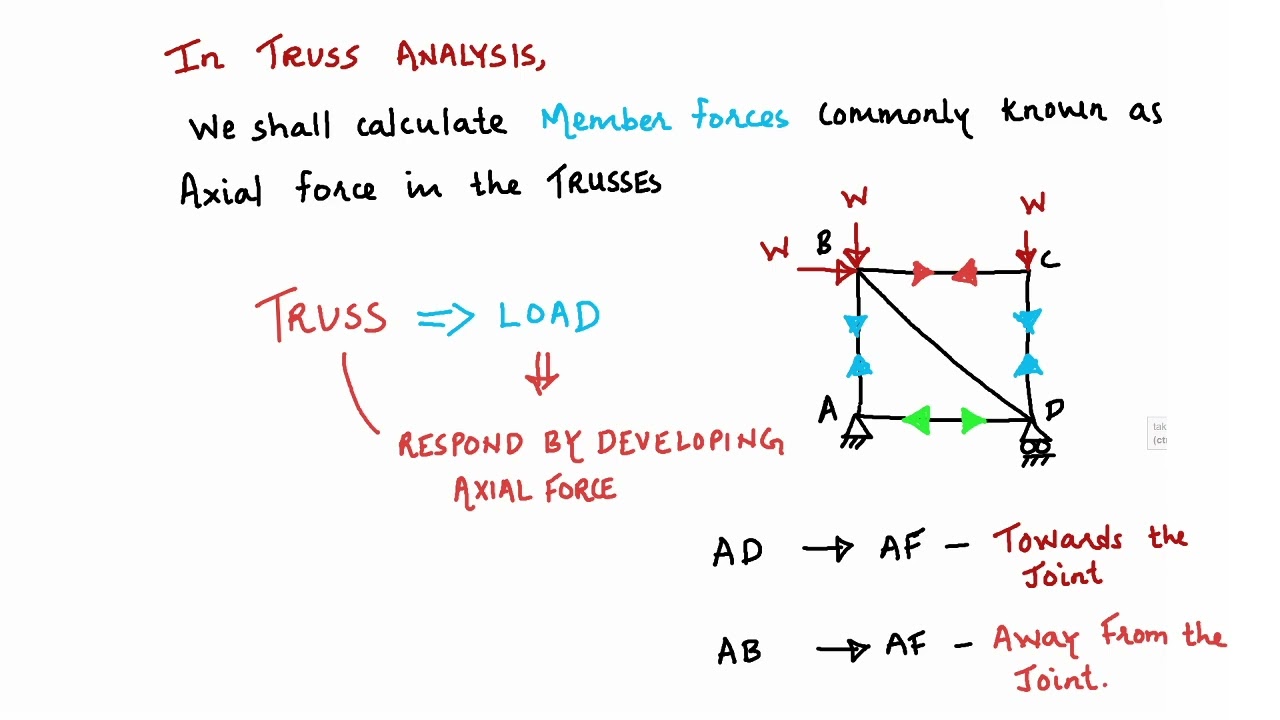 In TRUSS ANALYSIS,
We shall calculate Member forces commonly known as
Axial force in the TRUSSES
W
W
W
B
C
TRUSS => LOAD
A
D
RESPOND BY DEVELOPING
AXIAL FORCE
tak
(ct
AD → AF - Towards the
Joint
AB → AF - Away From the
Joint.